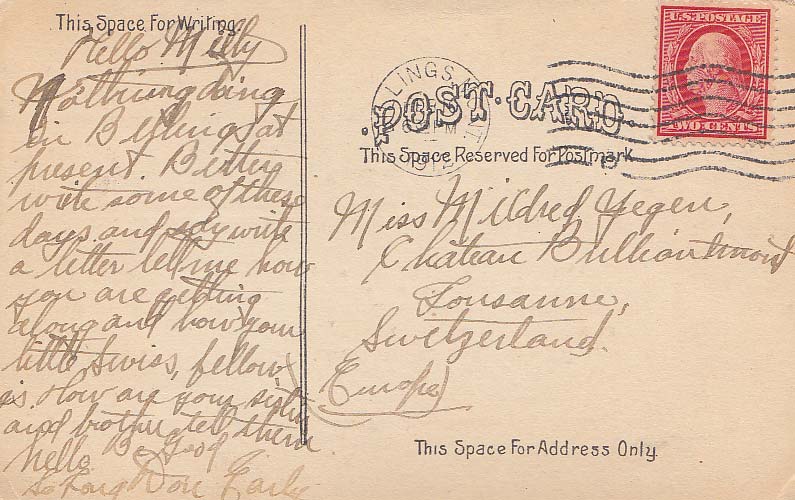 This Space For Writing
Hello Milly
Nothing ding
in Billings at
present. Better
write some of these
days and
a letter let me how
you are getting
along and how your
little Swiss, fellow,
is How are your sister
and brother tell them
hello. Be Good
So Long Don Early
LINGS, M
PM
1912
POST CARD
This Space Reserved For Postmark
U.S. POSTAGE
TWO CENTS
Miss Mildred Yegen,
Château Brilliantmont
Lousanne,
Switzerland.
(Europe)
This Space For Address Only.